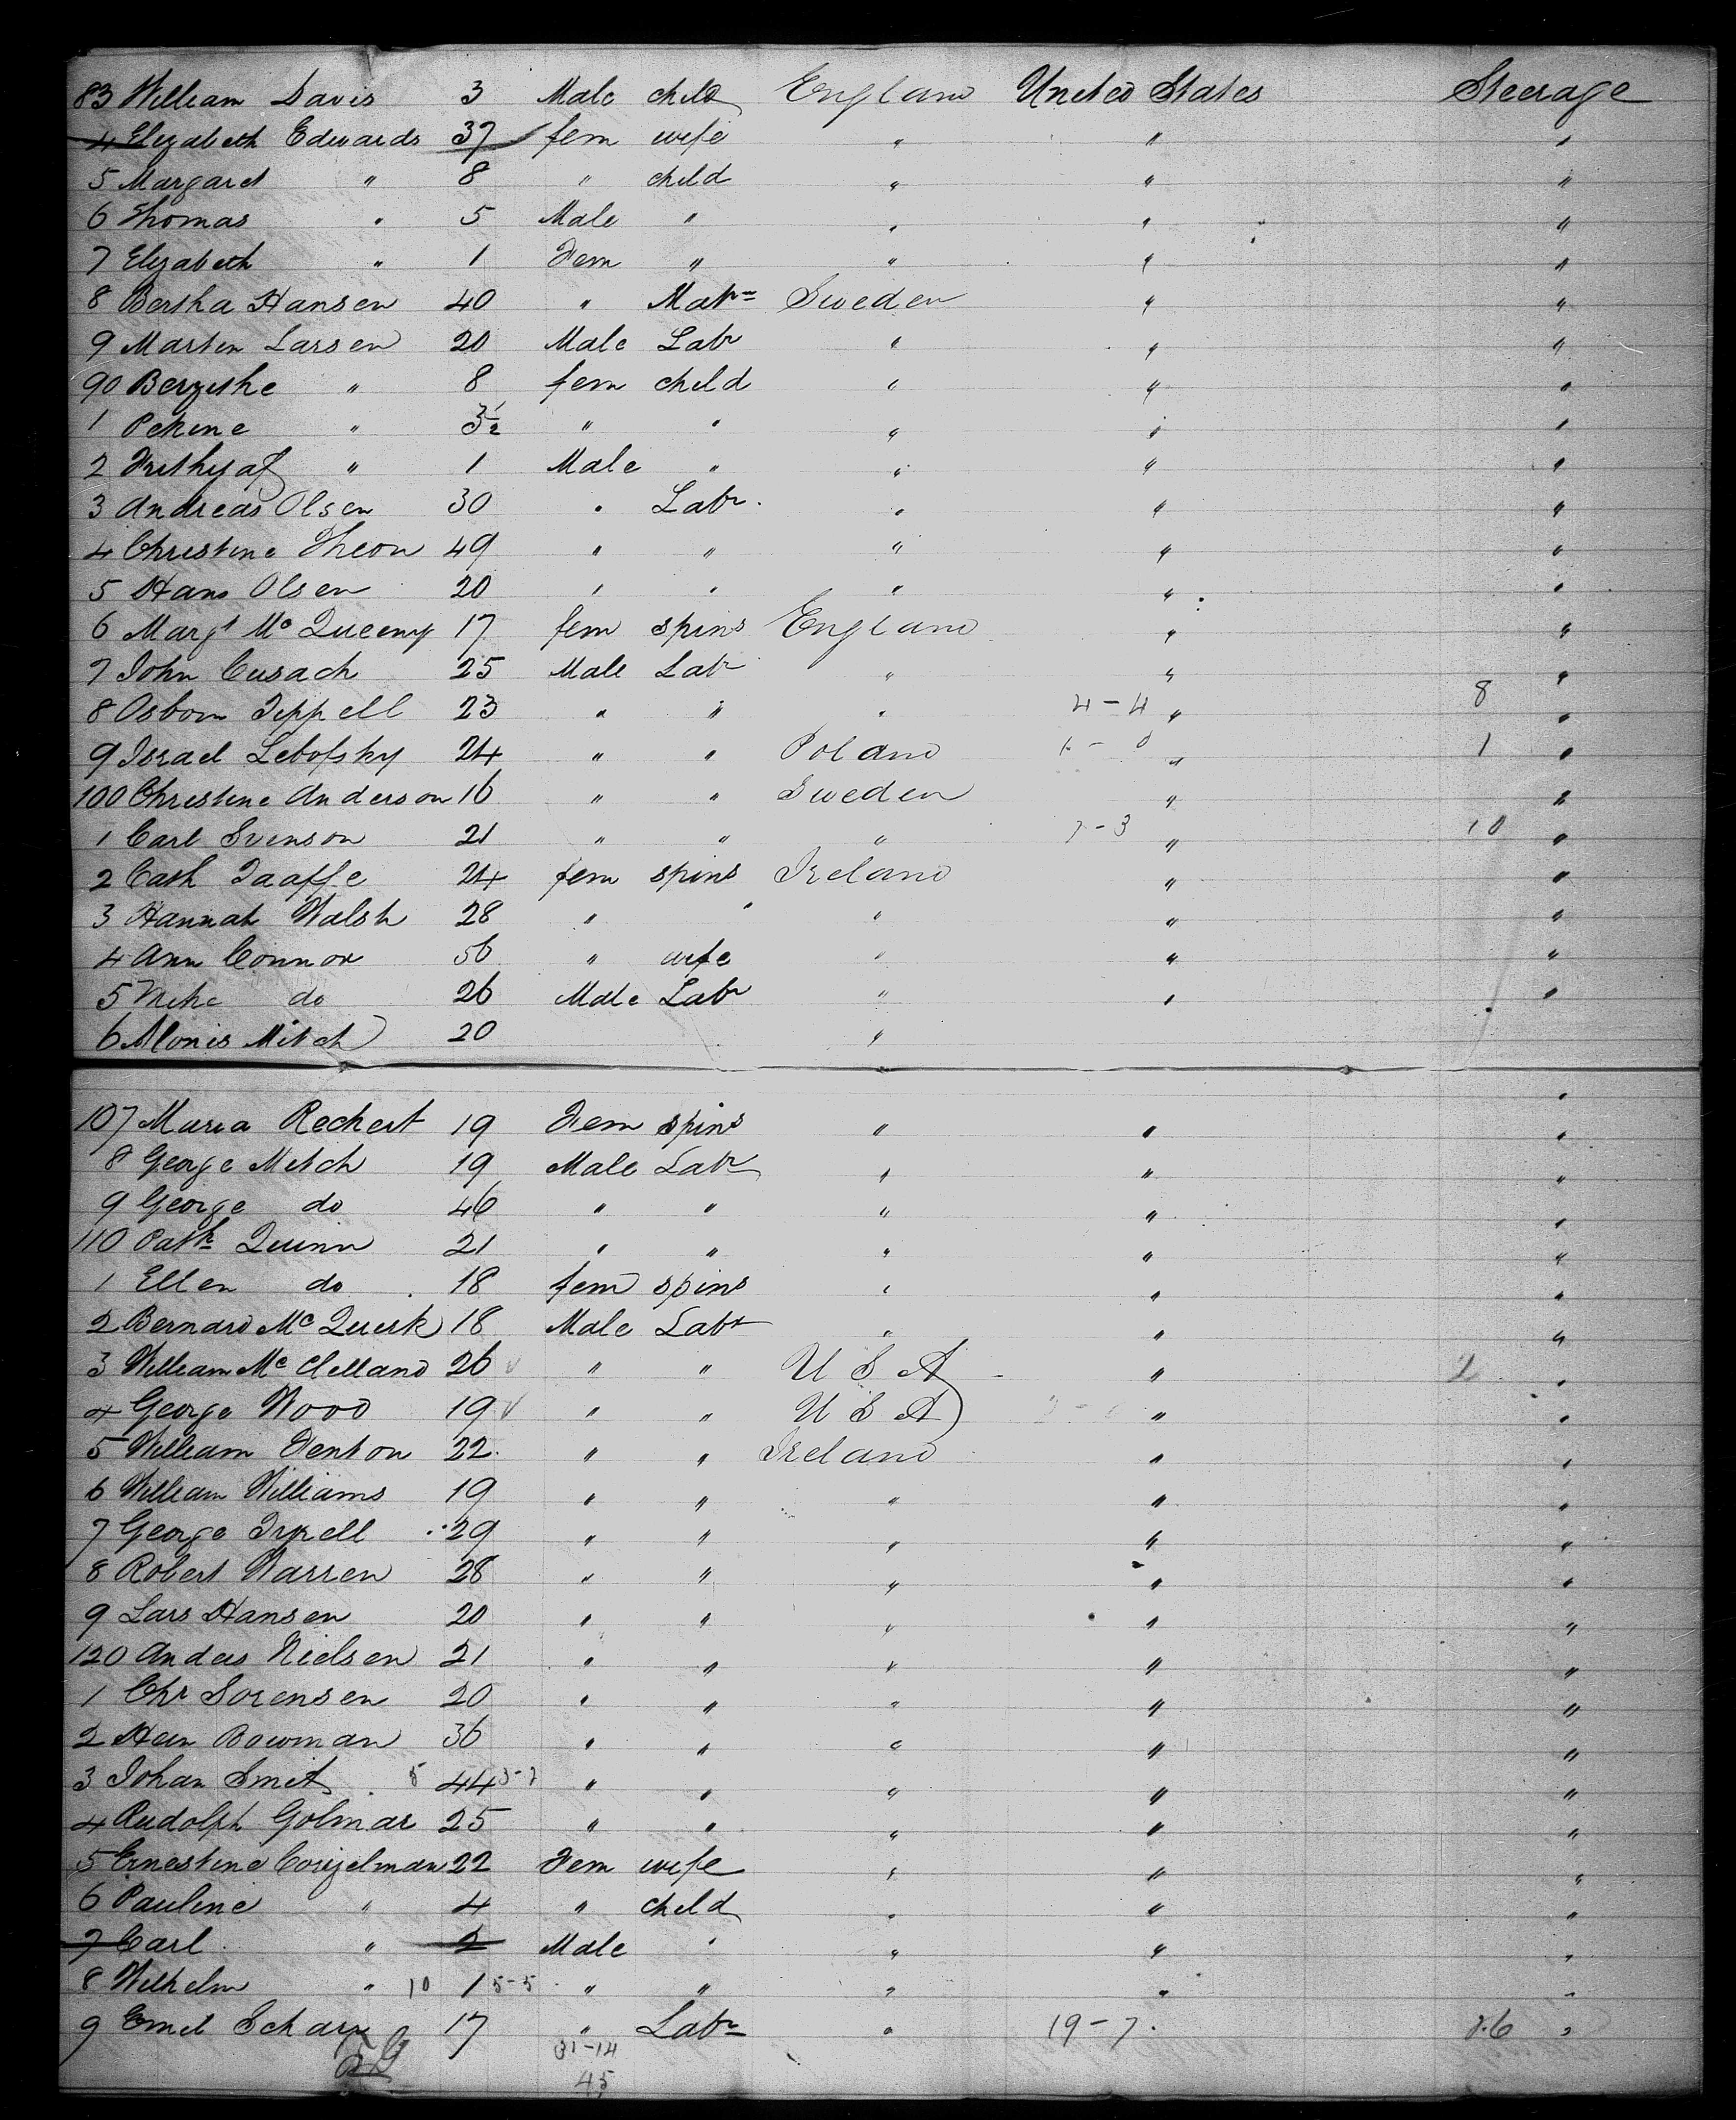 83 William Davis 3 Male child England United States Steerage
4 Elizabeth Edwards 37 fem wife " " "
5 Margaret " 8 " child " " "
6 Thomas " 5 Male " " " "
7 Elizabeth " 1 Fem " " " "
8 Bertha Hansen 40 " Matn Sweden " "
9 Marten Larsen 20 Male Labr " " "
90 Bergithe " 8 fem child " " "
1 Pekine " 3½ " " " " "
2 Frithyof " 1 Male " " " "
3 Andreas Olsen 30 " Labr " " "
4 Christine Theon 49 " " " " "
5 Hans Olsen 20 " " " " "
6 Margt Mc Queeny 17 fem spins England " "
7 John Cusach 25 Male Labr " " "
8 Osborn Tippell 23 " " " 4-4 " 8 "
9 Israel Lebofsky 24 " " Poland " 1 "
100 Christine Anderson 16 " " Sweden " "
1 Carl Svenson 21 " " " 7-3 " 10 "
2 Cath Taaffe 24 fem spins Ireland " "
3 Hannah Walsh 28 " " " " "
4 Ann Connor 56 " wife " " "
5 Mike do 26 Male Labr " " "
6 Alonis Mitch 20 "
107 Maria Rechert 19 Fem spins " " "
8 George Metch 19 Male Labr " " "
9 George do 46 " " " " "
110 Patk Quinn 21 " " " " "
1 Ellen do 18 fem spins " " "
2 Bernard Mc Querk 18 Male Labr " " "
3 William Mc Clelland 26 " " U S A " 2 "
4 George Wood 19 " " U S A " "
5 William Fenton 22 " " Ireland " "
6 William Williams 19 " " " " "
7 George Tyrell 29 " " " " "
8 Robert Warren 28 " " " " "
9 Lars Hansen 20 " " " " "
120 Anders Nielsen 21 " " " " "
1 Chr Sorensen 20 " " " " "
2 Hein Bowman 36 " " " " "
3 Johan Smit 5 44 5-7 " " " " "
4 Rudolph Golmar 25 " " " " "
5 Ernestine Coizelman 22 Fem wife " " "
6 Pauline " 4 " child " " "
7 Carl " 2 Male " " " "
8 Wilhelm " 10 1 5-5 " " " " "
9 Emil Scharp 17 " Labr " 19-7 26 "
31-14
45